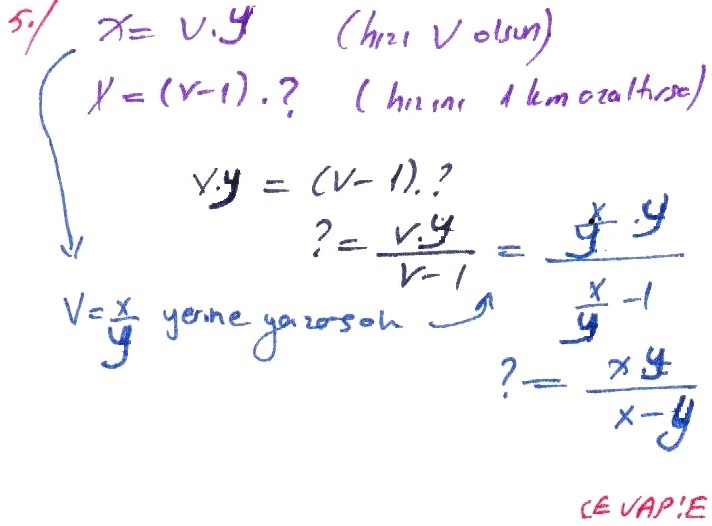 5./ x = V.y (hızı V olsun)
x = (V-1).? (hızını 1 km azaltırsa)
V.y = (V-1).?
? = V.y / V-1 = x/y .y / x/y -1
V = x/y yerine yazarsak
? = xy / x-y
CEVAP:E